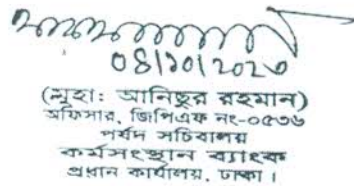 08/10/2020
(মুহা: আনিছুর রহমান)
অফিসার, জিপিএফ নং-০৫৩৬
পর্ষদ সচিবালয়
কর্মসংস্থান ব্যাংক
প্রধান কার্যালয়, ঢাকা।